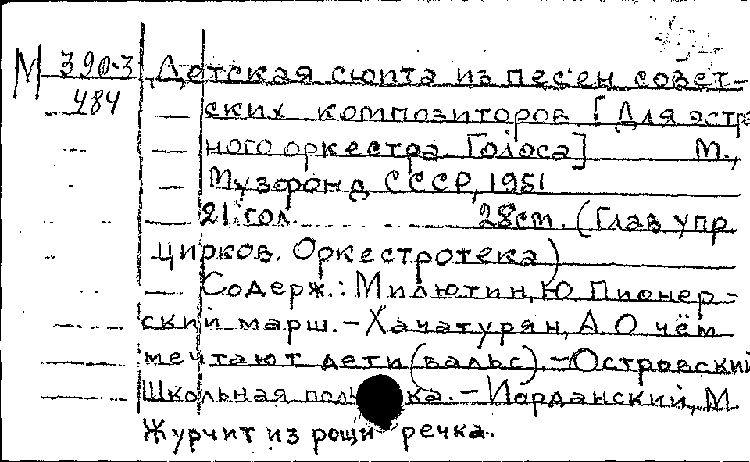 М 390-3 Детская сюита из песен совет-
484 ских композиторов [Для эстра
ного оркестра Голоса] М.,
Музфонд СССР, 1951
21 гол. 28 ст. (Глав упр
цирков. Оркестротека)
Содерж.: Милютин, Ю Пионер-
ский марш. - Хачатурян, А. О чём
мечтают дети (вальс). - Островский
Школьная поль ка. - Иорданский, М.
Журчит из рощи речка.